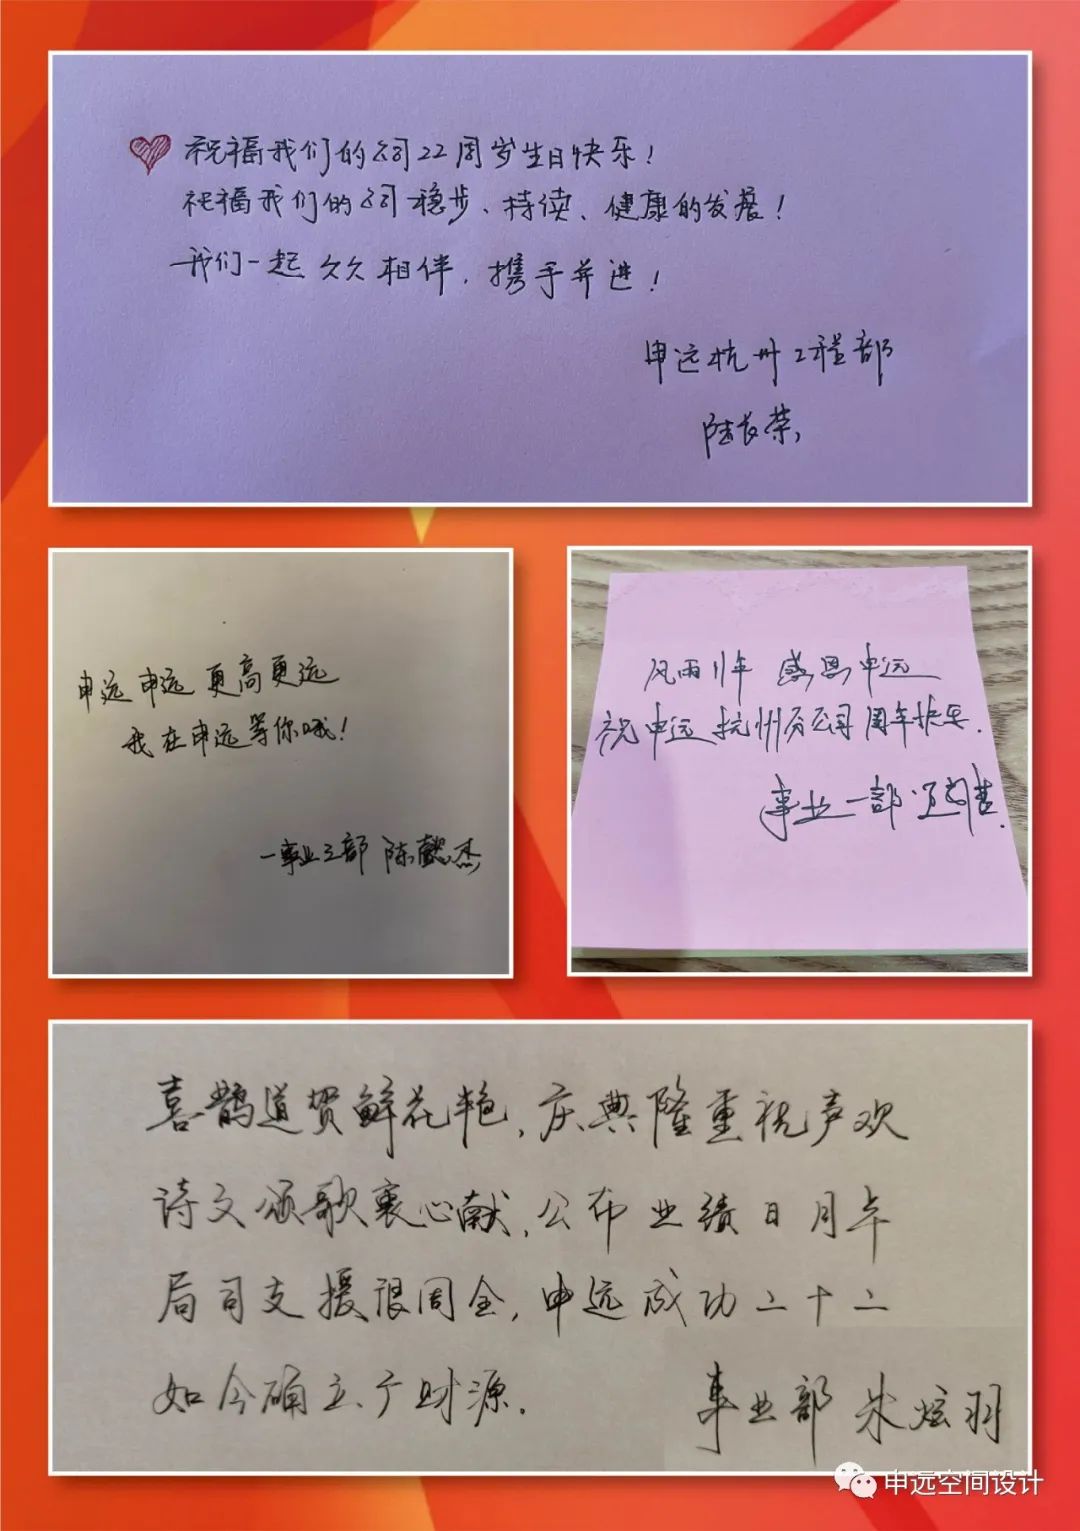 祝福我们的公司22周岁生日快乐!
祝福我们的公司稳步、持续、健康的发展!
我们一起久久相伴,携手并进!
申远杭州工程部
陆长荣
申远申远 更高更远
我在申远等你哦!
一事业三部 陈懿杰
风雨 年 感恩申远
祝申远杭州分公司周年快乐.
事业一部
喜鹊道贺鲜花艳,庆典隆重祝声欢
诗文颂歌衷心献,公布业绩日月年
局司支援很周全,申远成功二十二
如今确立广财源.
事业部 朱炫羽
申远空间设计